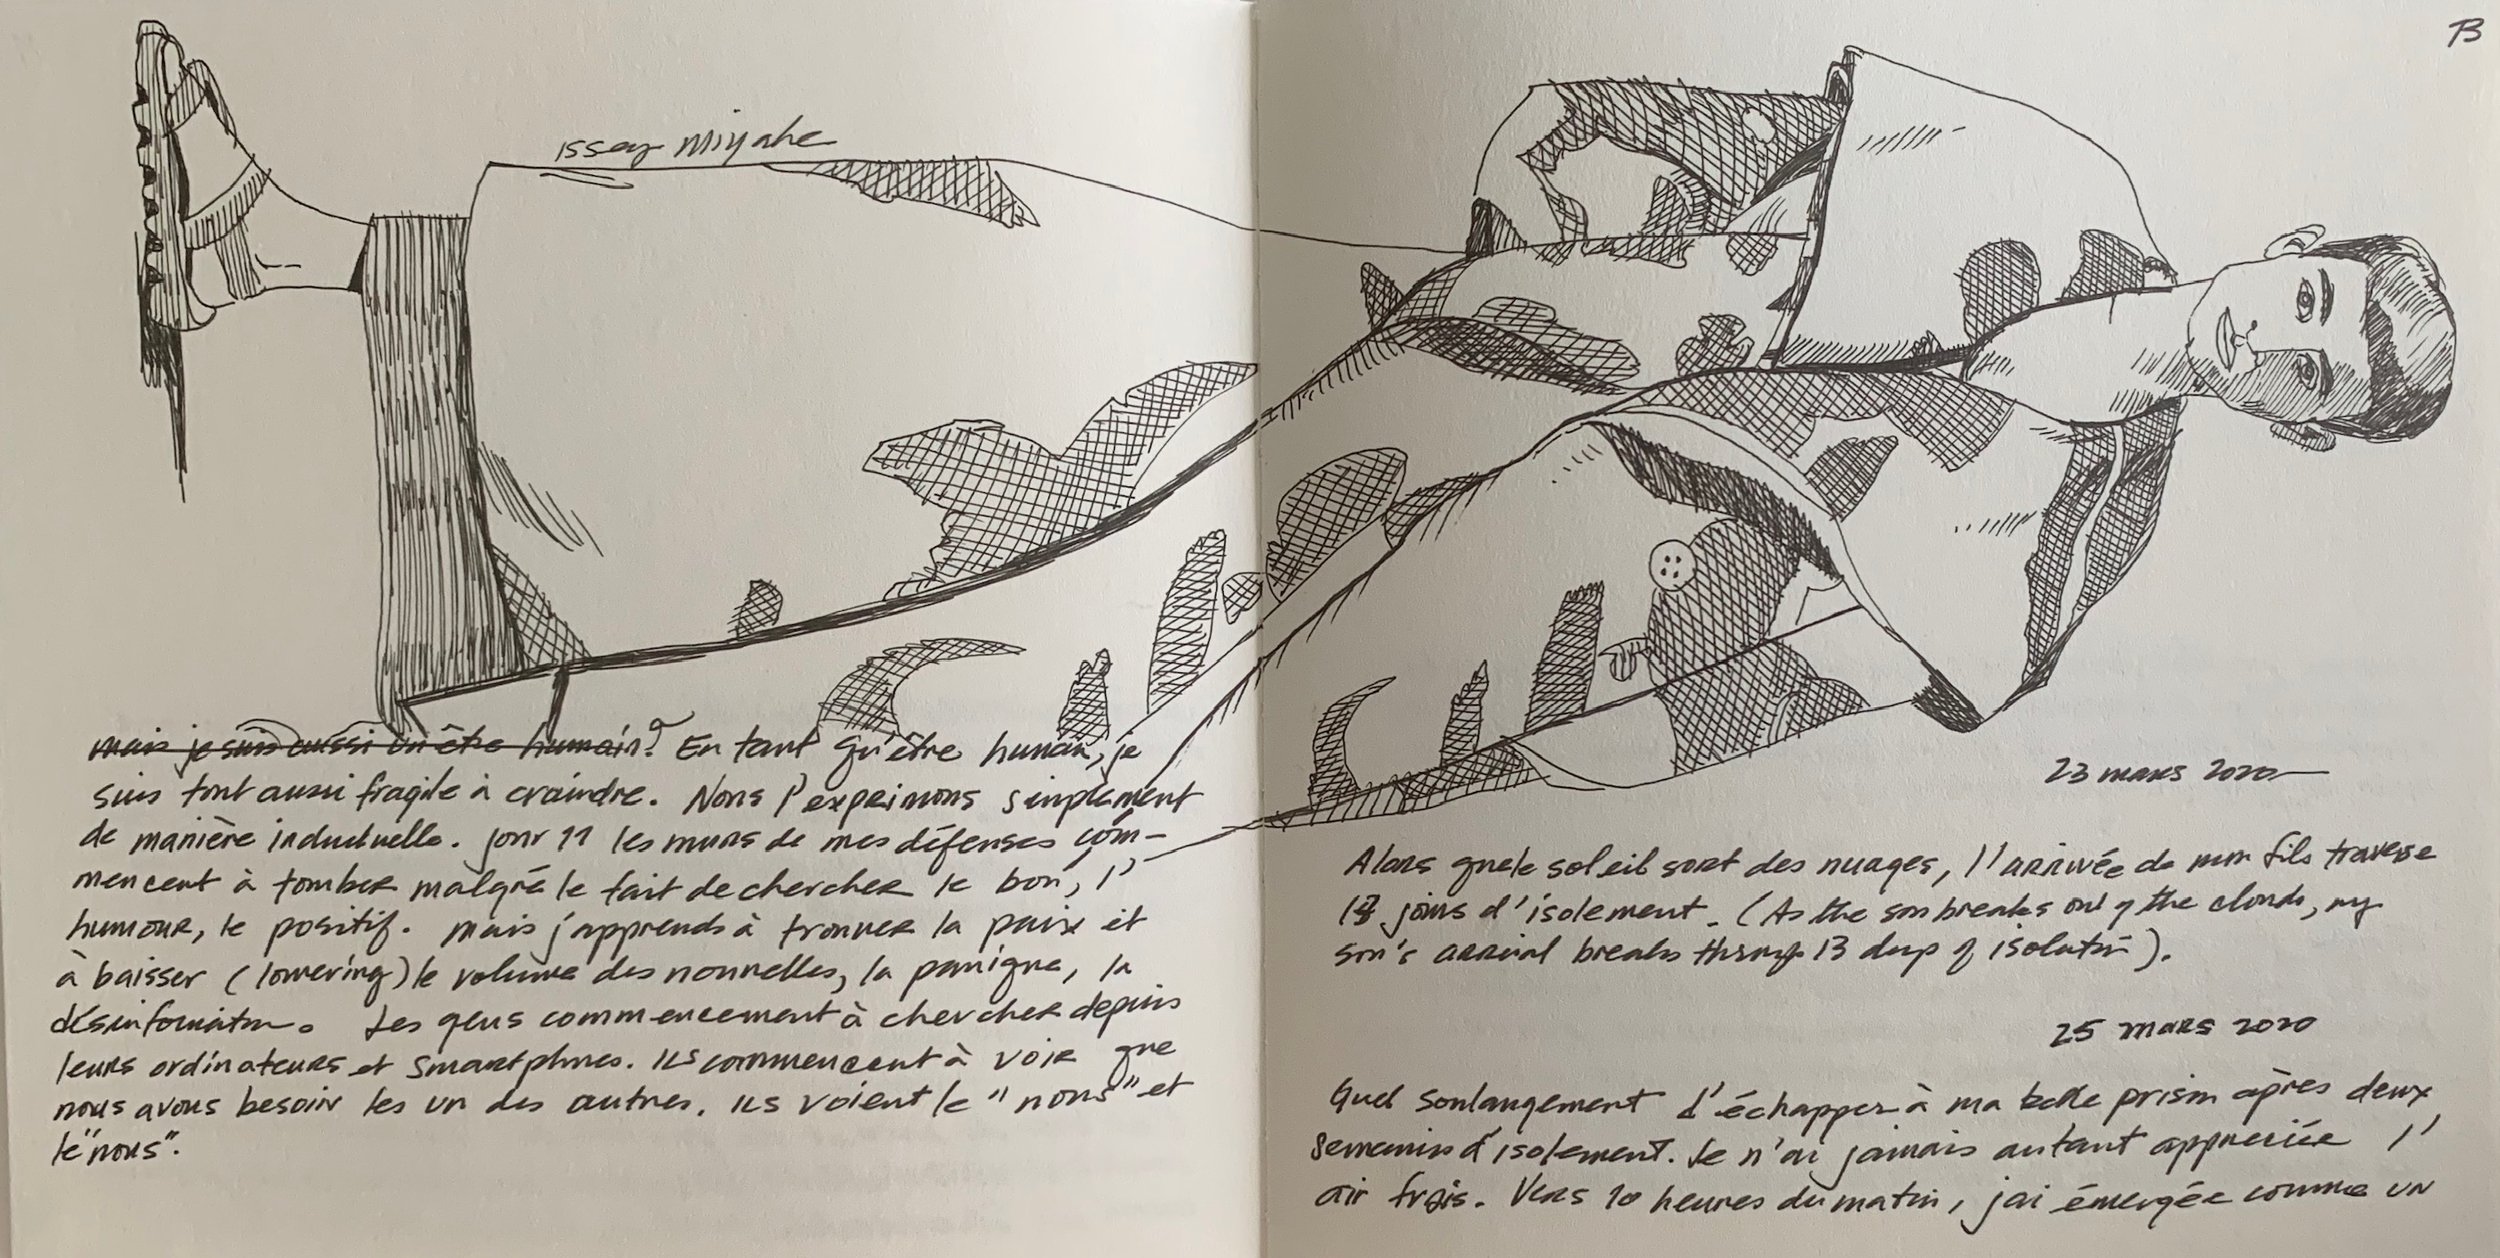 Issey Miyake
mais je suis aussi un être humain? En tant qu'être human, je
suis tout aussi fragile à craindre. Nous l'exprimons simplement
de manière induduelle. jour 11 les murs de mes défenses com-
mencent à tomber malgré le fait de chercher le bon, l'
humour, le positif. mais j'apprends à trouver la paix et
à baisser (lowering) le volume des nouvelles, la panique, la
désinformation. Les gens commencement à chercher depuis
leurs ordinateurs et smartphones. Ils commencent à voir que
nous avons besoin les un des autres. Ils voient le "nous" et
le "nous".
13
23 mars 2020
Alors que le soleil sort des nuages, l'arrivée de mon fils traverse
13 jours d'isolement. (As the son breaks out of the clouds, my
son's arrival breaks through 13 days of isolation).
25 mars 2020
Quel soulangement d'échapper à ma belle prison après deux
semaines d'isolement. Je n'ai jamais autant appreciée l'
air frais. Vers 10 heures du matin, jai émergée comme un